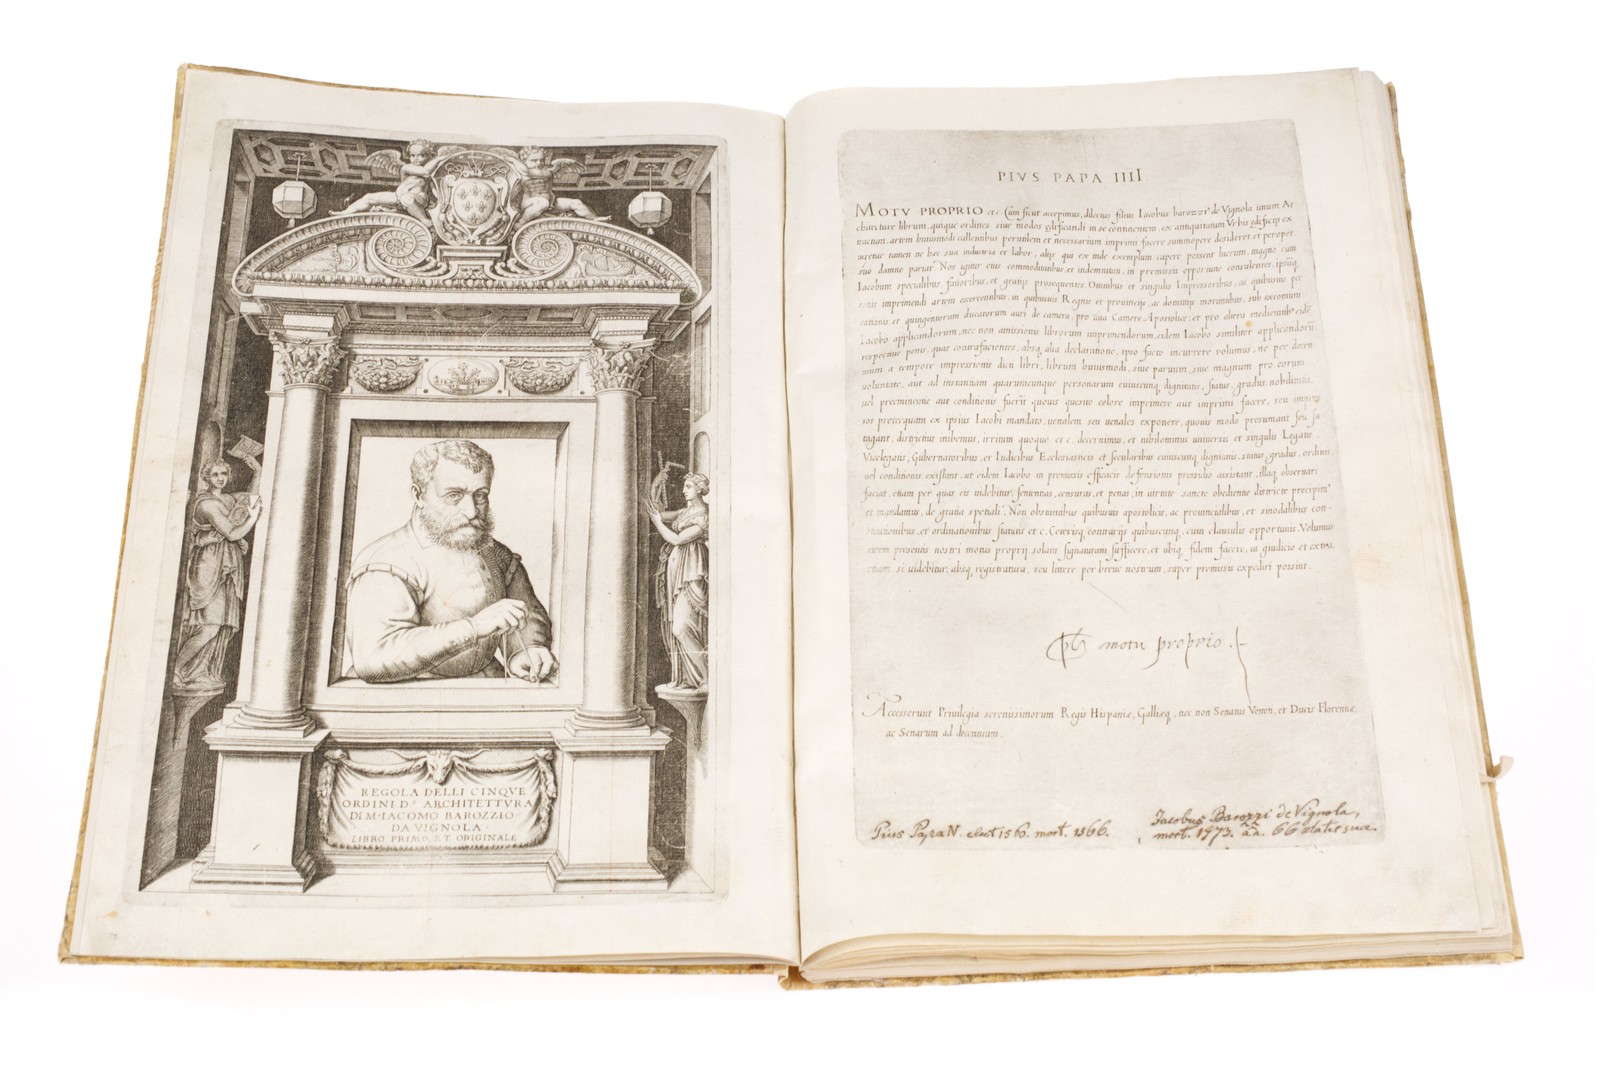 REGOLA DELLI CINQVE
ORDINI D' ARCHITETTVRA
DI M. IACOMO BAROZZIO
DA VIGNOLA.
LIBRO PRIMO, ET ORIGINALE
PIVS PAPA IIII
MOTV PROPRIO et c. Cum sicut accepimus, dilectus filius Iacobus barozzi' de Vignola unum Ar
chitecture librum, quinque ordines siue modos edificandi in se continentem, ex antiquitatum Vrbis edificijs ex
tractum, artem huiusmodi callentibus perutilem et necessarium imprimi facere summopere desideret, et
uereatur tamen ne hec sua industria et labor, alijs qui ex inde exemplum capere possent lucrum, magno cum
suo damno pariat. Nos igitur eius commoditatibus, et indemnitati, in premissis opportune consulentes, ipsuq,
Iacobum specialibus fauoribus, et gratijs prosequentes. Omnibus et singulis Impressoribus, ac quibusuis per
sonis imprimendi artem exercentibus, in quibusuis Regnis et prouincijs, ac dominijs morantibus, sub excomuni
cationis, et quingentorum ducatorum auri de camera, pro una Camere Apostolice: et pro altera medietatib' eidē
Iacobo applicandorum, nec non amissionis librorum imprimendorum, eidem Iacobo similiter applicandorū:
respectiue penis, quas contrafacientes, absq, alia declaratione, ipso facto incurrere volumus, ne per decen
nium a tempore impressionis dicti libri, librum huiusmodi, siue paruum, siue magnum pro eorum
voluntate, aut ad instantiam quarumcunque personarum cuiuscunq, dignitatis, status, gradus, nobilitatis,
uel preeminentie aut conditionis fuerīt quouis quesito colore imprimere aut imprimi facere, seu impres
sor preterquam ex ipsius Iacobi mandato, uenalem seu uenales exponere, quouis modo presumant seu sa
tagant, districtius inibemus, irritum quoque et c. decernimus, et nihilominus uniuersis et singulis Legatis
Vicelegatis, Gubernatoribus, et Iudicibus Ecclesiasticis et secularibus cuiuscunq, dignitatis, status, gradus, ordinis,
uel conditionis existant, ut eidem Iacobo in premissis efficacis defensionis presidio assistant, illaq, observari
faciat, etiam per quas eis uidebitur, sententias, censuras, et penas, in virtute sancte obedientie districte precipim'
et mandamus, de gratia spetiali. Non obstantibus quibusuis apostolicis, ac prouincialibus, et sinodalibus con-
stitutionibus, et ordinationibus statutis et c. Ceterisq, contrarijs quibuscunq, cum clausulis opportunis. Volumus
autem presentis nostri motus proprij solam signaturam sufficere, et ubiq, fidem facere, in giudicio et extra,
etiam si uidebitur, absq, registratura, seu littere per breue nostrum, super premissis expediri possint.
motu proprio.
Accesserunt Privilegia serenissimorum Regis Hispaniæ, Galliæq, nec non Senatus Veneti, et Ducis Florentiæ,
ac Senarum ad decennium.
Pius Papa IV. elect 1560. mort. 1566.
Jacobus Barozzi de Vignola,
mort. 1973. aa. 66 etatis suæ.